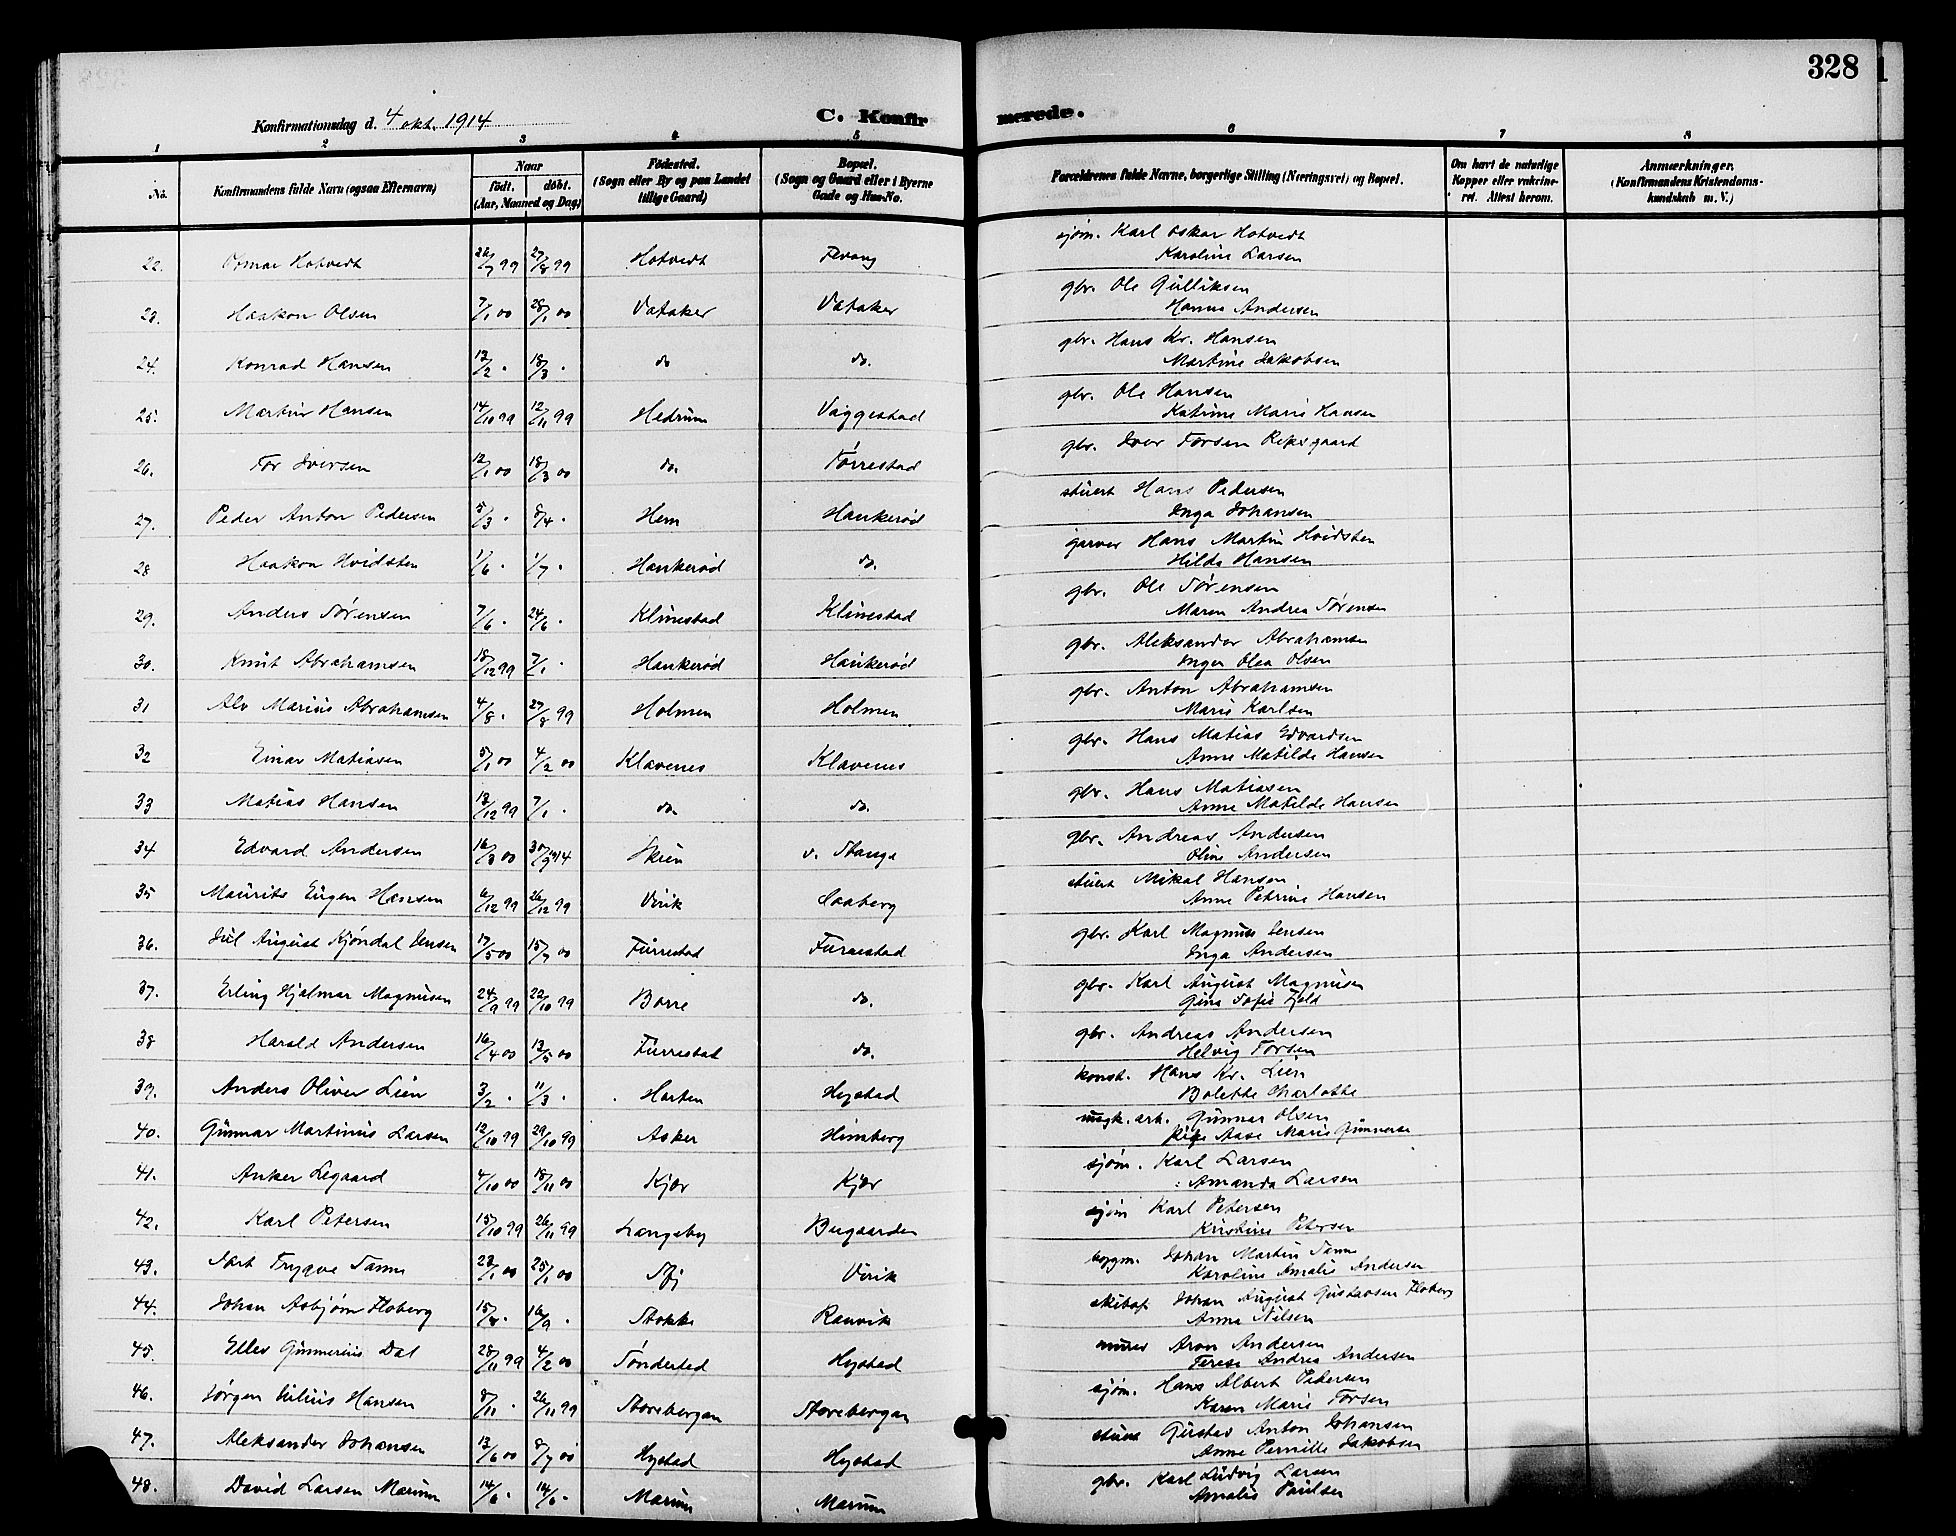 328
Konfirmationsdag d. 4 okt. 1914
C. Konfirmerede.
1 2 3 4 5 6 7 8
No. Konfirmandens fulde Navn (ogsaa Efternavn) Naar født. døbt. (Aar, Maaned og Dag) Fødested. (Sogn eller By og paa Landet tillige Gaard) Bopæl. (Sogn og Gaard eller i Byerne Gade og Hus-No. Forældrenes fulde Navne, borgerlige Stilling (Næringsvei) og Bopæl. Om havt de naturlige Kopper eller vakcineret. Attest herom. Anmærkninger. (Konfirmandens Kristendomskundskab m. V.)
22. Hotvedt 26/7 99 27/8 99 Hotvedt sjøm. Karl Oskar Hotvedt
Karoline Larsen
23. Haakon Olsen 7/1 00 28/1 00 Vataker Vataker gbr. Ole Gulliksen
Hanna Andersen
24. Konrad Hansen 12/2 . 18/3 . do do. gbr. Hans Kr. Hansen
Martine Jakobsen
25. Martin Hansen 14/10 99 12/11 99 Hedrum Vaggestad gbr. Ole Hansen
Katrine Marie Hansen
26. Tor Iversen 12/1 00 18/3 00 do. Torrestad gbr. Iver Torsen
27. Peder Anton Pedersen 5/3 . 8/4 . Hem Haukerød stuert Hans Pedersen
Inga Johansen
28 Haakon Hvidsten 1/6 . 1/7 . Haukerød do. garver Hans Martin Hvidsten
Hilda Hansen
29. Anders Sørensen 7/6 . 24/6 . Klinestad Klinestad gbr. Ole Sørensen
Maren Andrea Sørensen
30. Knut Abrahamsen 18/12 99 7/1 . Haukerød Haukerød gbr. Aleksander Abrahamsen
Inger Olea Olsen
31 Alv Marius Abrahamsen 4/8 . 27/8 99 Holmen Holmen gbr. Anton Abrahamsen
Marie Karlsen
32 Einar Matiasen 5/1 00 4/2 00 Klavenes Klavenes gbr. Hans Matias Edvardsen
Anne Matilde Hansen
33 Matias Hansen 18/12 99 7/1 . do. do. gbr. Hans Matiasen
Anne Matilde Hansen
34 Edvard Andersen 16/3 00 30/9 1914 Skien v. Stange gbr. Andreas Andersen
Oline Andersen
35 Maurits Eugen Hansen 6/12 99 26/12 99 Virik Saaberg stuert Mikal Hansen
Anne Petrine Hansen
36. Jul August Kjøndal Jensen 17/5 00 15/7 00 Furrestad Furuestad gbr. Karl Magnus Jensen
Inga Andersen
37. Erling Hjalmar Magnusen 24/9 99 22/10 99 Borre do. gbr. Karl August Magnusen
Gina Sofie
38 Harald Andersen 16/4 00 13/5 00 Furrestad do. gbr. Andreas Andersen
Helvig Torsen
39. Anders Oliver Lien 3/2 . 11/3 . Horten Hystad konst. Hans Kr. Lien
Bolette Charlotte
40. Gunnar Martinius Larsen 12/10 99 29/10 99 Asker Himberg arb. Gunnar Olsen
Aase Marie
41. Anker Legaard 4/10 00 18/11 00 Kjær Kjær sjøm. Karl Larsen
Amanda Larsen
42. Karl Petersen 15/10 99 26/11 99 Langeby Bugaarden sjøm Karl Petersen
Kristine Petersen
43. Trygve 23/1 00 25/1 00 Virik Johan Martin
Karoline Amalie Andersen
44. Johan Asbjørn Floberg 15/8 . 16/9 . Stokke Ranvik Johan August Gustavsen Floberg
Anna Nilsen
45. Ellev Gunnerius Dal 28/11 99 4/2 00 Sønderled Hystad murer Aron Andersen
Terese Andrea Andersen
46. Jørgen Julius Hansen 8/11 . 26/11 99 Storebergan Storebergan sjøm. Hans Albert Pedersen
Karen Marie Torsen
47. Aleksander Johansen 13/6 00 8/7 00 Hystad Hystad Gustav Anton Johansen
Anne Pernille Jakobsen
48. David Larsen Marum 14/6 . Marum Marum gbr. Karl Ludvig Larsen
Amalie Paulsen